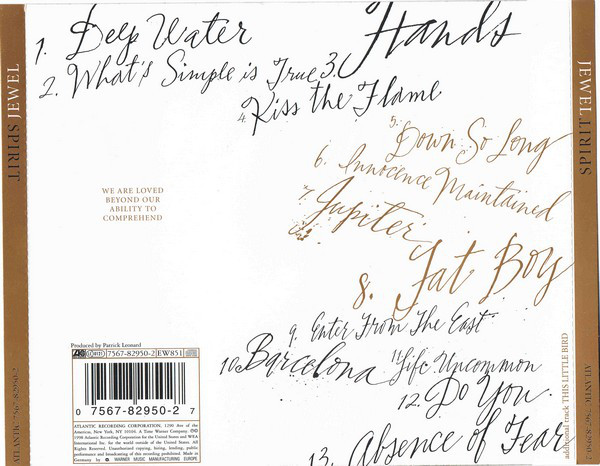 JEWEL SPIRIT
1. Deep Water
2. What's Simple is True
3. Hands
4. Kiss the Flame
5. Down So Long
6. Innocence Maintained
7. Jupiter
8. Fat Boy
9. Enter From The East
10. Barcelona
11. Life Uncommon
12. Do You
13. Absence of Fear
additional track THIS LITTLE BIRD
WE ARE LOVED
BEYOND OUR
ABILITY TO
COMPREHEND
Produced by Patrick Leonard
7567-82950-2 EW851
0 7567-82950-2 7
ATLANTIC RECORDING CORPORATION, 1290 Ave of the
Americas, New York, NY 10104. A Time Warner Company. ℗©
1998 Atlantic Recording Corporation for the United States and WEA
International Inc. for the world outside of the United States. All
Rights Reserved. Unauthorized copying, hiring, lending, public
performance and broadcasting of this recording prohibited. Made in
Germany by WARNER MUSIC MANUFACTURING EUROPE
ATLANTIC 7567-82950-2
JEWEL SPIRIT
ATLANTIC 7567-82950-2